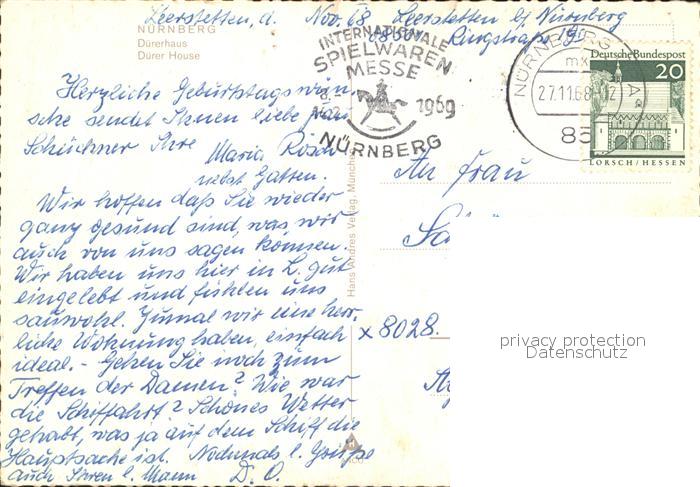 Leerstetten, d. Nov. 68 Leerstetten b/ Nürnberg
8501 Ringstraße 19
NÜRNBERG
Dürerhaus
Dürer House
INTERNATIONALE
SPIELWAREN
MESSE
1969
NÜRNBERG
NÜRNBERG
mk
27.11.68
85
Deutsche Bundespost
20
LORSCH / HESSEN
Herzliche Geburtstagswün-
sche sendet Ihnen liebe Frau
Schüchner Ihre Maria
nebst Gatten.
Wir hoffen daß Sie wieder
ganz gesund sind, was wir
auch von uns sagen können.
Wir haben uns hier in L. gut
eingelebt und fühlen uns
sauwohl. Zumal wir eine herr-
liche Wohnung haben, einfach
ideal. - Gehen Sie noch zum
Treffen der Damen? Wie war
die Schiffahrt? Schönes Wetter
gehabt, was ja auf dem Schiff die
Hauptsache ist. Nochmals l. Grüße
auch Ihren l. Mann D. O.
Hans Andres Verlag, München
An Frau
x 8028.
privacy protection
Datenschutz